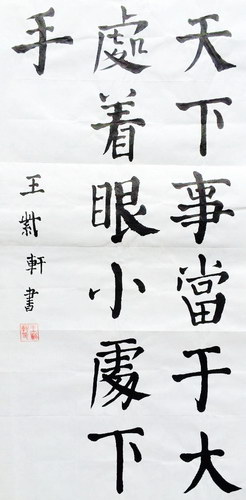 天下事當于大
處着眼小處下
手
王紫軒書